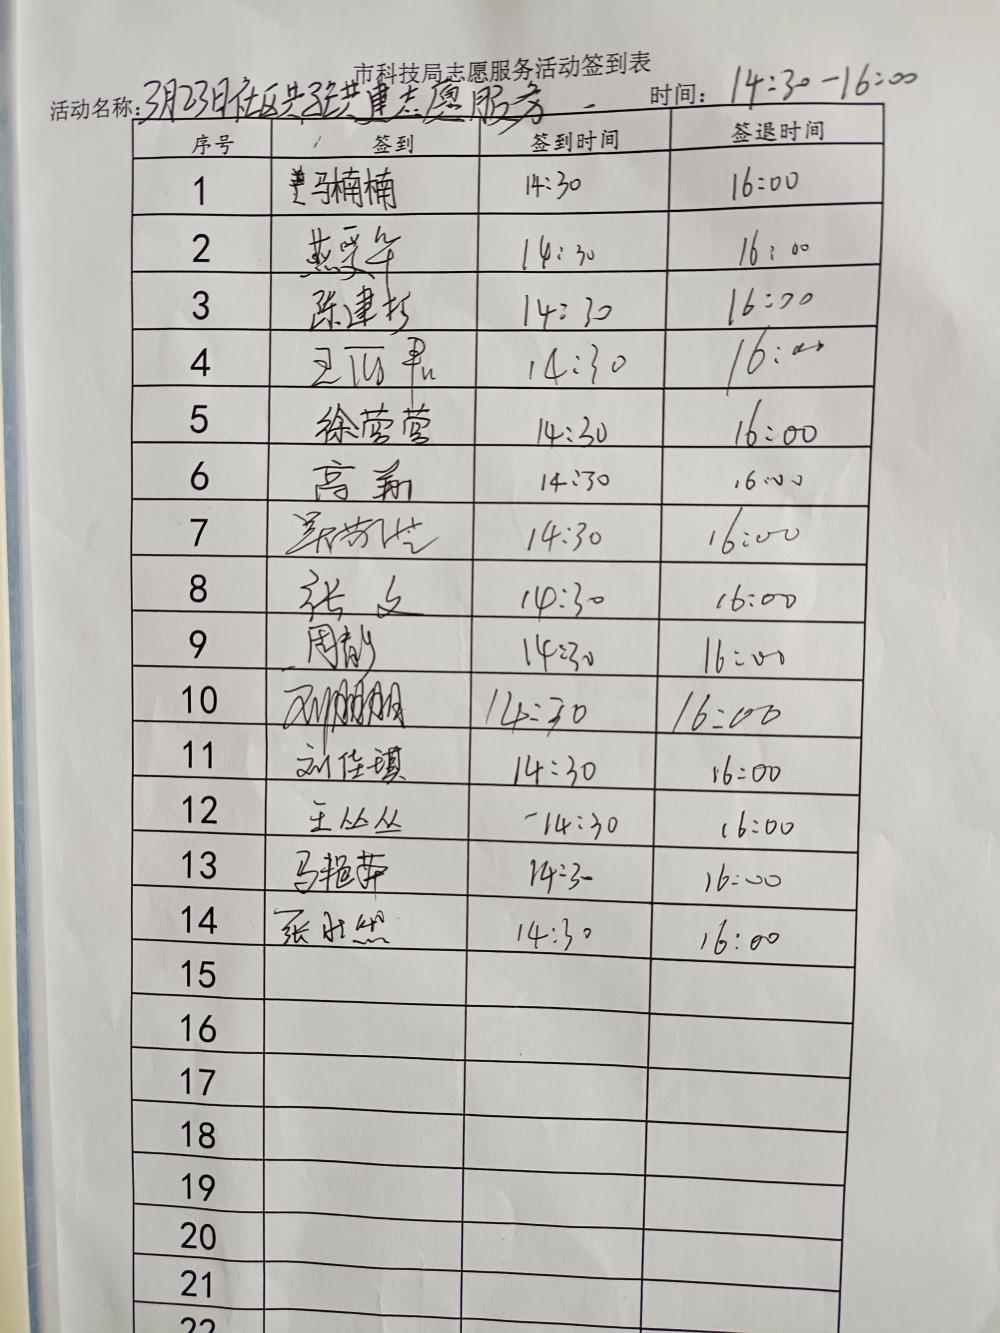 市科技局志愿服务活动签到表
活动名称:3月23日社区共驻共建志愿服务 时间: 14:30-16:00
序号 签到 签到时间 签退时间
1 马楠楠 14:30 16:00
2 14:30 16:00
3 陈建 14:30 16:00
4 王 14:30 16:00
5 徐营营 14:30 16:00
6 高翔 14:30 16:00
7 14:30 16:00
8 张文 14:30 16:00
9 周 14:30 16:00
10 刘朋朋 14:30 16:00
11 刘佳琪 14:30 16:00
12 王丛丛 14:30 16:00
13 马艳萍 14:30 16:00
14 张 14:30 16:00
15
16
17
18
19
20
21
22